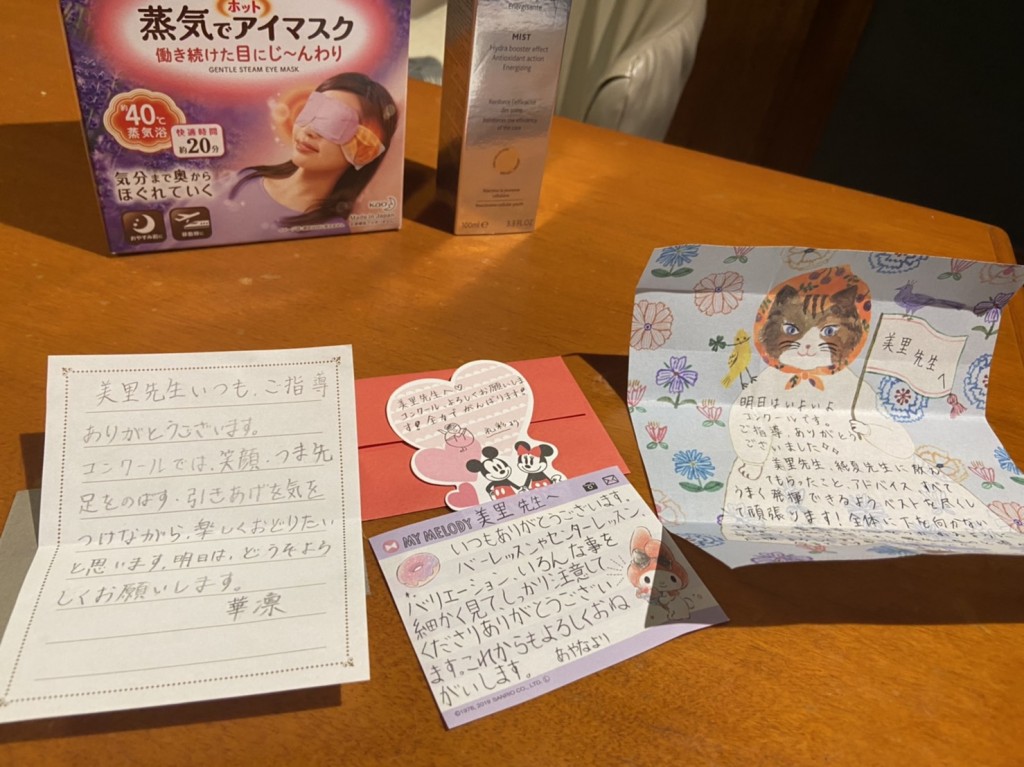 ホット
蒸気でアイマスク
働き続けた目にじ〜んわり
GENTLE STEAM EYE MASK
約40℃
蒸気浴
快適時間
約20分
気分まで奥から
ほぐれていく
おやすみ前に
移動時に
Kao
Made in Japan
MIST
Hydra booster effect
Antioxidant action
Energising
100ml e
美里先生いつも、ご指導
ありがとうございます。
コンクールでは、笑顔、つま先
足をのばす・引きあげを気を
つけながら、楽しくおどりたい
と思います。明日は、どうぞよろ
しくお願いします。
華凛
美里先生へ♡
コンクール、よろしくお願いしま
す!!全力でがんばります!
MY MELODY 美里先生へ
いつもありがとうございます。
バーレッスンやセンターレッスン、
バリエーション、いろんな事を
細かく見て、しっかり注意して
くださりありがとうござい
ます。これからもよろしくおね
がいします。
あやなより
©1976, 2019 SANRIO CO., LTD.
美里先生
へ
明日はいよいよ
コンクールです。
ご指導、ありがとう
ございました。
美里先生、先生に教えて
もらったこと、アドバイス、すべて
うまく発揮できるようベストを尽くし
て頑張ります!全体に下を向かない